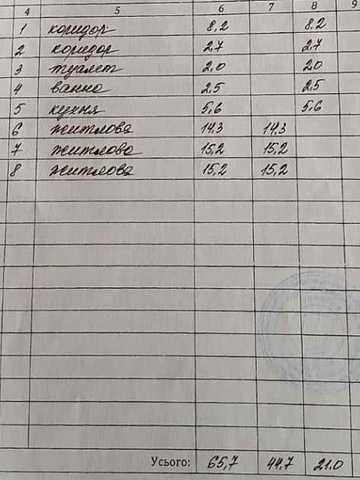 4 5 6 7 8 9
1 коридор 8,2 8,2
2 коридор 2,7 2,7
3 туалет 2,0 2,0
4 ванна 2,5 2,5
5 кухня 5,6 5,6
6 житлова 14,3 14,3
7 житлова 15,2 15,2
8 житлова 15,2 15,2
Усього: 65,7 44,7 21,0